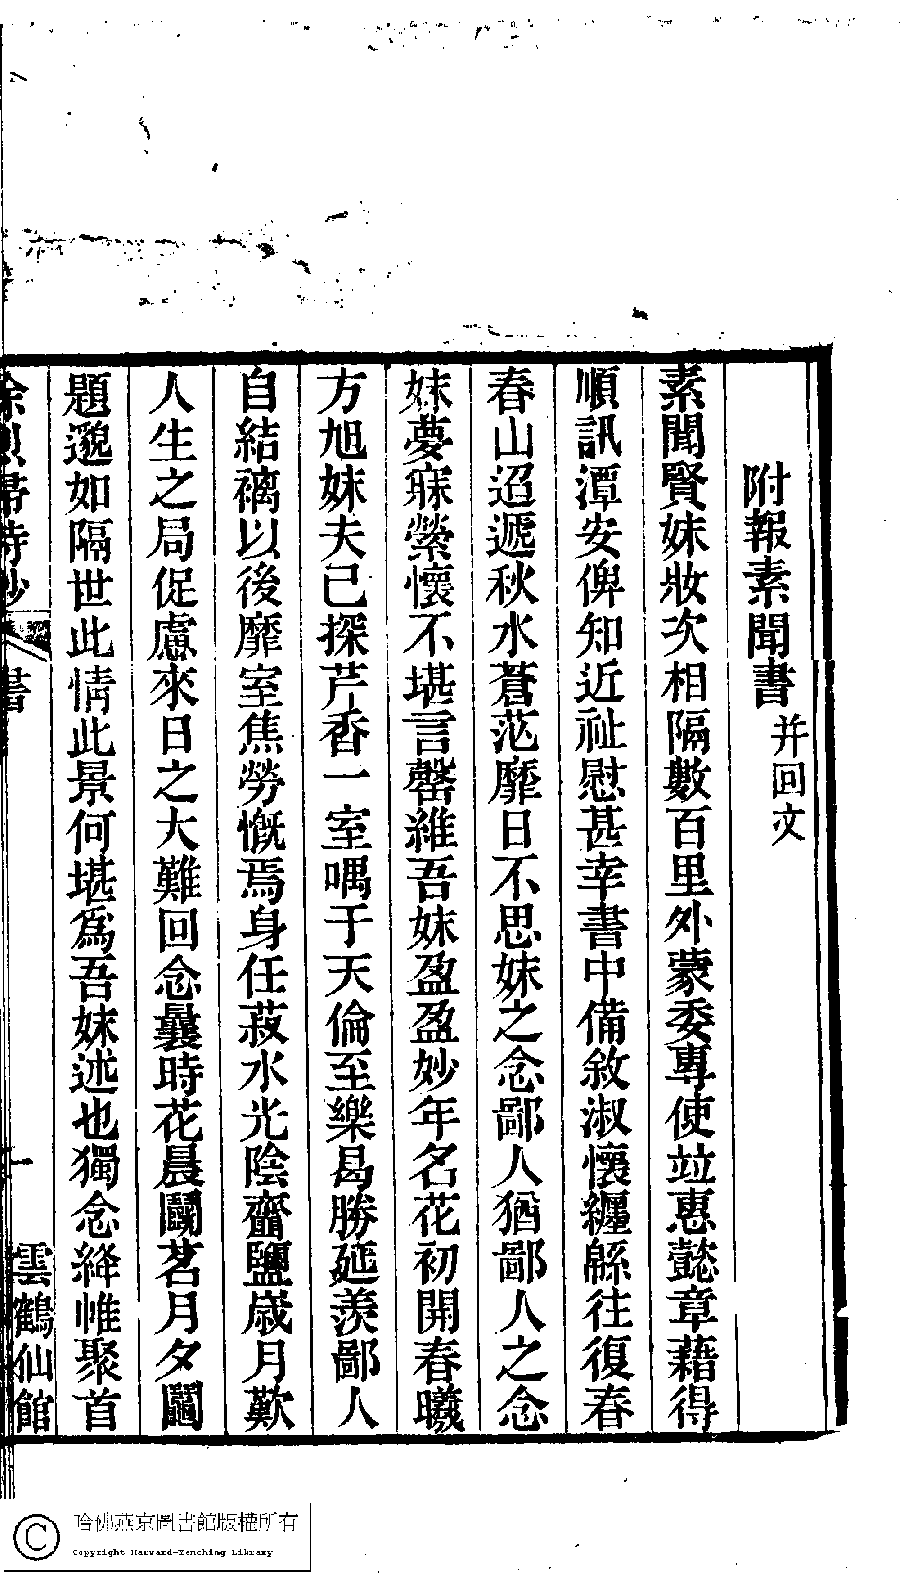 附報素聞書并回文
素聞賢妹妝次相隔數百里外蒙委專使竝惠懿章藉得
順訊潭安俾知近祉慰甚幸書中備敘淑懷纏緜往復春
春山迢遞秋水蒼茫靡日不思妹之念鄙人猶鄙人之念
妹夢寐縈懷不堪言罄維吾妹盈盈妙年名花初開春曦
方旭妹夫已探芹香一室喁于天倫至樂曷勝延羨鄙人
自結褵以後靡室焦勞慨焉身任菽水光陰齏鹽歲月歎
人生之局促慮來日之大難回念曩時花晨鬭茗月夕鬮
題邈如隔世此情此景何堪爲吾妹述也獨念絳帷聚首
徐烈婦詩鈔
書
一
雲鶴仙館
哈佛燕京圖書館版權所有
Copyright Harvard-Yenching Library